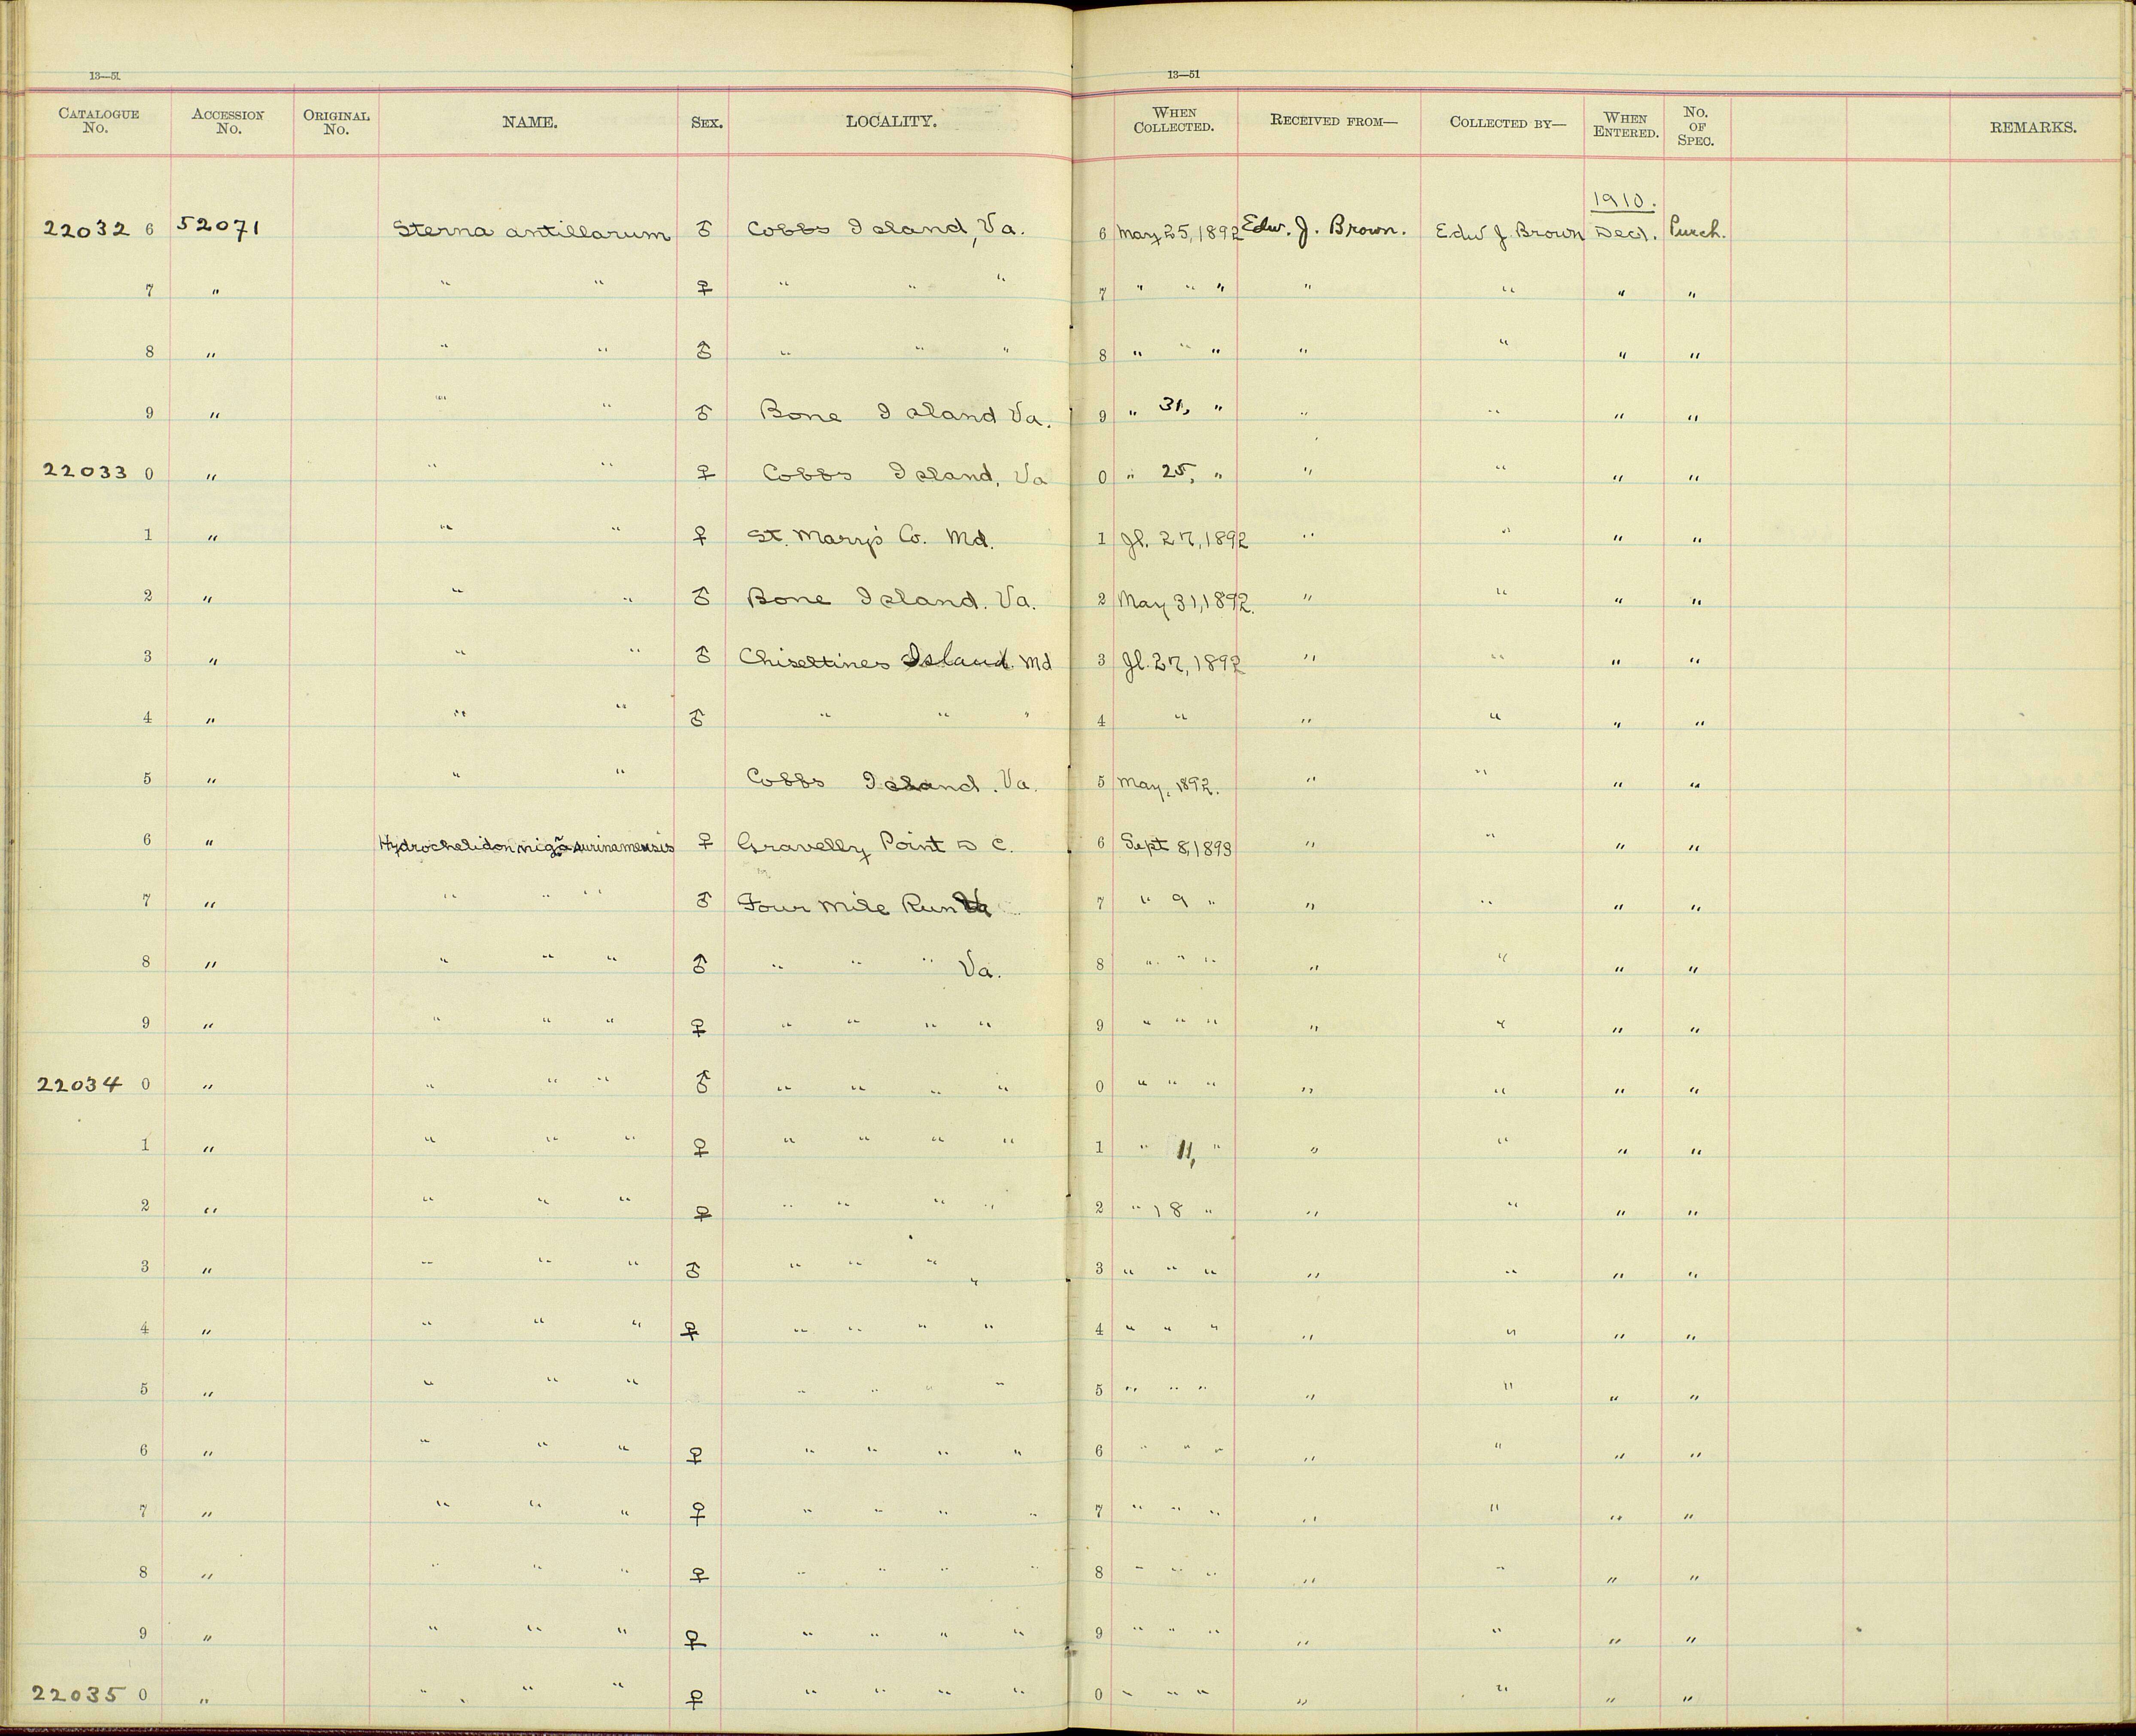 13—51 13—51
CATALOGUE No. ACCESSION No. ORIGINAL No. NAME. SEX. LOCALITY. WHEN COLLECTED. RECEIVED FROM— COLLECTED BY— WHEN ENTERED. No. OF SPEC. REMARKS.
1910.
22032 6 52071 Sterna antillarum ♂ Cobbs Island, Va. 6 May 25, 1892 Edw. J. Brown. Edw J. Brown Dec 1. Purch.
7 " " " ♀ " " " 7 " " " " " " "
8 " " " ♂ " " " 8 " " " " " " "
9 " " " ♂ Bone Island Va. 9 " 31, " " " " "
22033 0 " " " ♀ Cobbs Island, Va 0 " 25, " " " " "
1 " " " ♀ St. Mary's Co. Md. 1 Jl. 27, 1892 " " " "
2 " " " ♂ Bone Island. Va. 2 May 31, 1892. " " " "
3 " " " ♂ Chiseltines Island. Md 3 Jl. 27, 1892 " " " "
4 " " " ♂ " " " 4 " " " " "
5 " " " Cobbs Island. Va. 5 May, 1892. " " " "
6 " Hydrochelidon nigra surinamensis ♀ Gravelly Point D C. 6 Sept 8, 1893 " " " "
7 " " " " ♂ Four Mile Run Va 7 " 9 " " " " "
8 " " " " ♂ " " " Va. 8 " " " " " " "
9 " " " " ♀ " " " " 9 " " " " " " "
22034 0 " " " " ♂ " " " " 0 " " " " " " "
1 " " " " ♀ " " " " 1 " 11, " " " " "
2 " " " " ♀ " " " " 2 " 18 " " " " "
3 " " " " ♂ " " " " 3 " " " " " " "
4 " " " " ♀ " " " " 4 " " " " " " "
5 " " " " " " " " 5 " " " " " " "
6 " " " " ♀ " " " " 6 " " " " " " "
7 " " " " ♀ " " " " 7 " " " " " " "
8 " " " " ♀ " " " " 8 " " " " " " "
9 " " " " ♀ " " " " 9 " " " " " " "
22035 0 " " " " ♀ " " " " 0 " " " " " " "